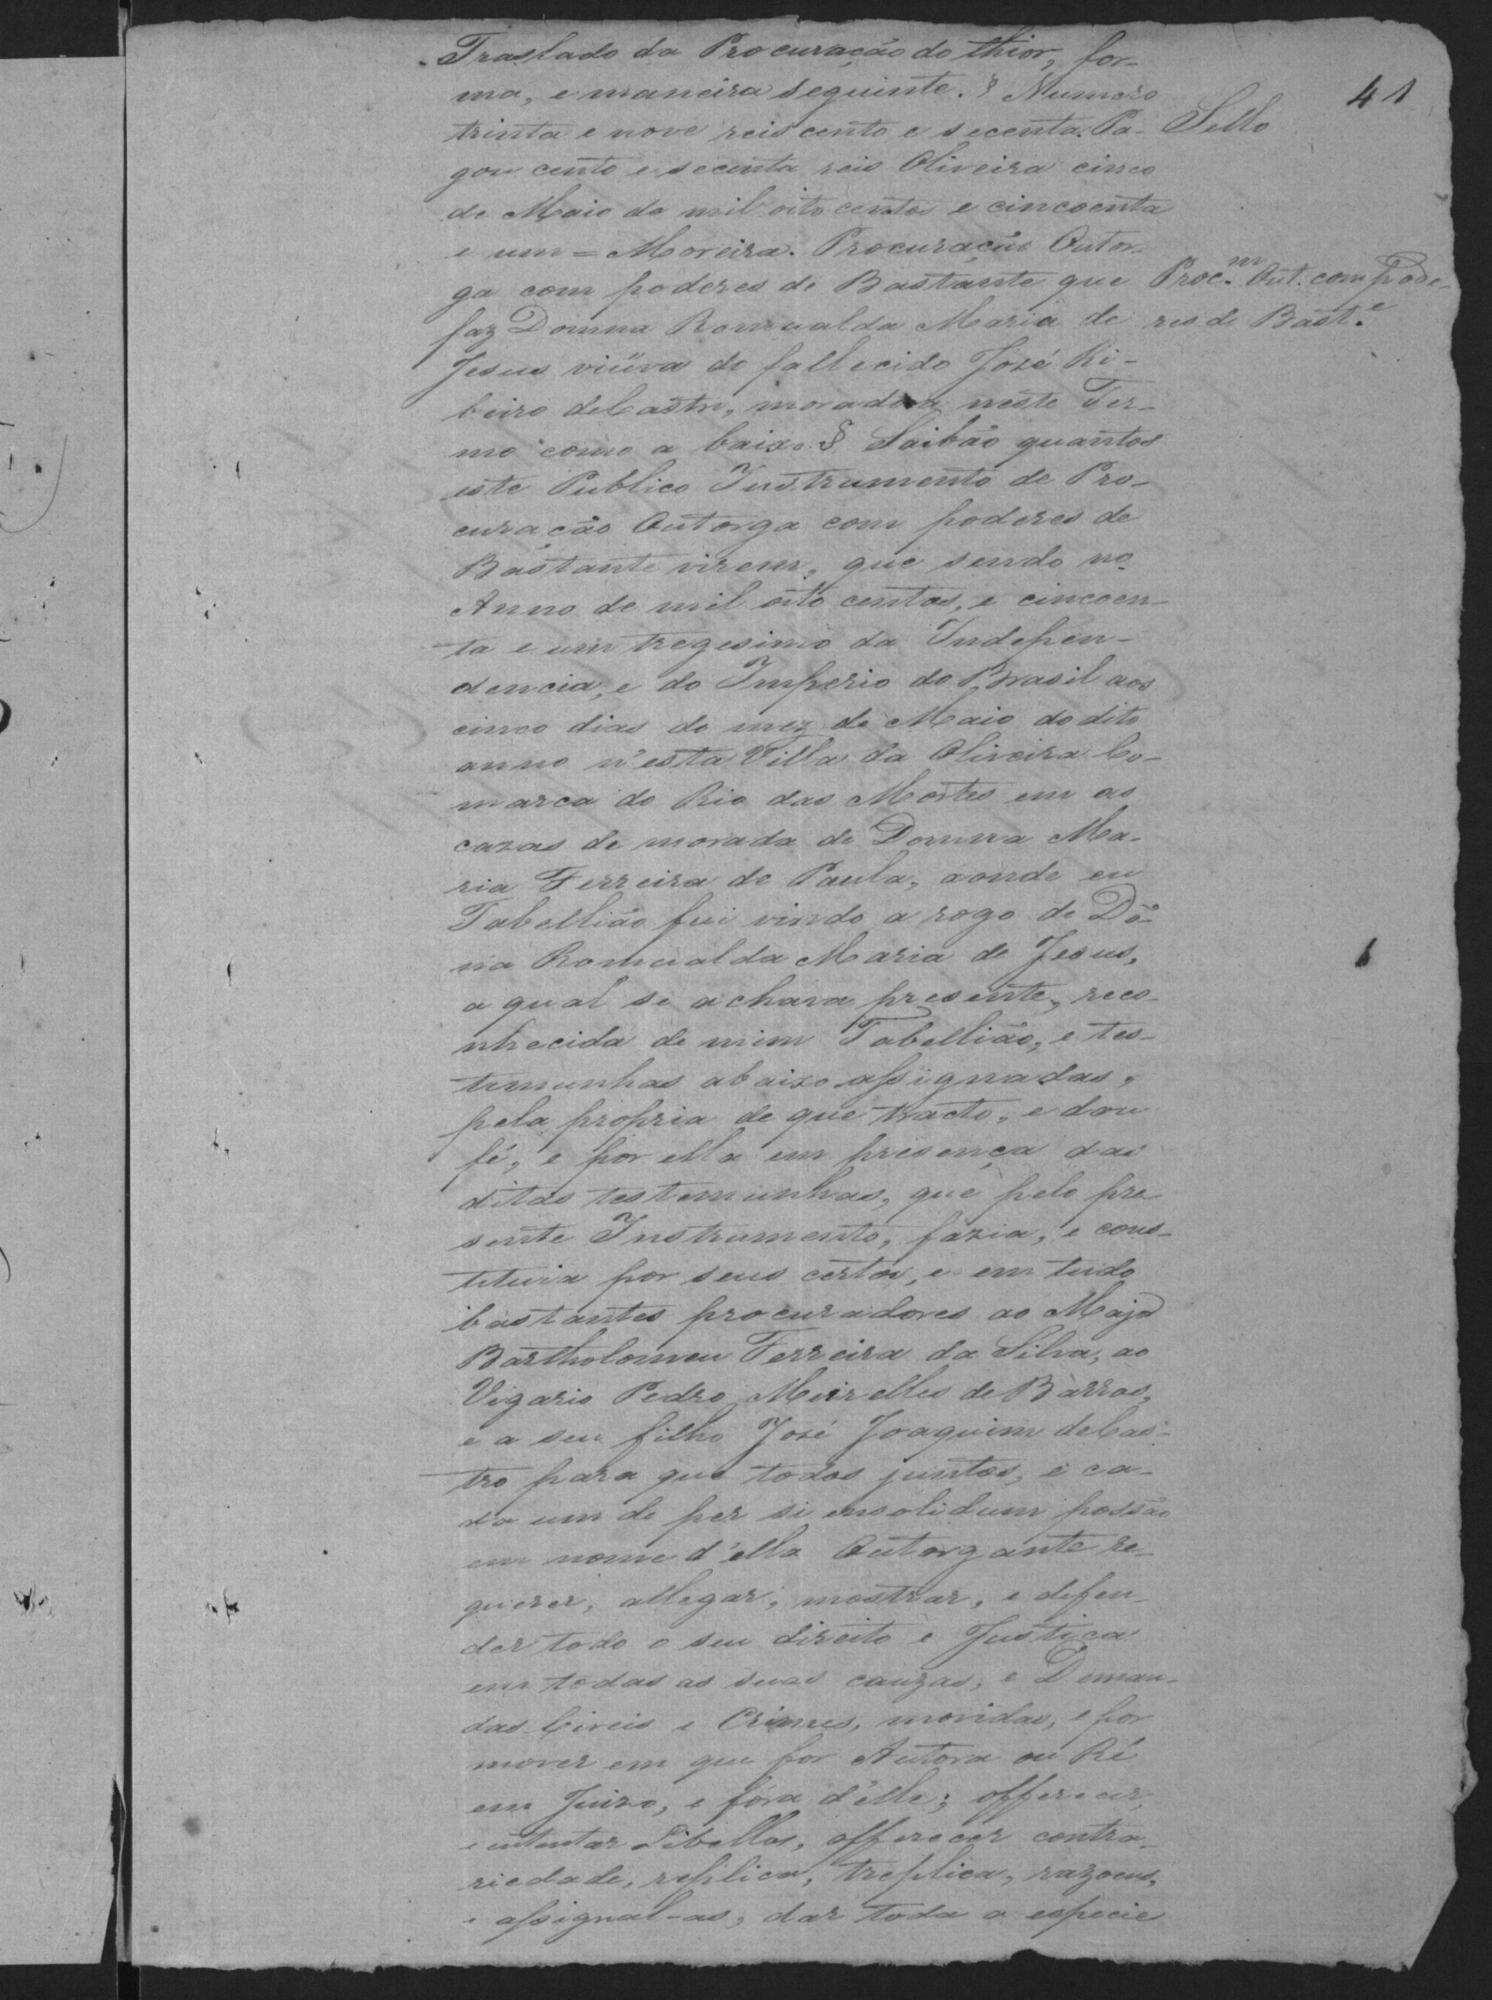 41
Traslado da Procuração do thior, for-
ma, e maneira seguinte. § Numero
trinta e nove reis cento e secenta. Pa-
Sello
gou cento e secenta reis Oliveira cinco
de Maio de mil oito centos e cincoenta
e um = Moreira. Procuração Outor-
ga com poderes de Bastante que
Proc.m Out. com pode-
faz Donna Romualda Maria de
res de Bast.e
Jesus viúva do fallecido José Ri-
beiro de Castro, moradora neste Ter-
mo como a baixo § Saibão quantos
este Publico Instrumento de Pro-
curação Outorga com poderes de
Bastante virem, que sendo no
Anno de mil oito centos, e cincoen-
ta e um tregesimo da Indepen-
dencia, e do Imperio do Brasil aos
cinco dias do mez de Maio do dito
anno n'esta Villa da Oliveira Co-
marca do Rio das Mortes em as
cazas de morada de Donna Ma-
ria Ferreira de Paula, aonde eu
Tabellião fui vindo a rogo de Do-
na Romualda Maria de Jesus,
a qual se achava presente, reco-
nhecida de mim Tabellião, e tes-
temunhas abaixo assignadas,
pela propria de que tracto, e dou
fé, e por ella em presença das
ditas testemunhas, que pelo pre
sente Instrumento, fazia, e cons-
tituia por seus certos, e em tudo
bastantes procuradores ao Major
Bartholomeu Ferreira da Silva, ao
Vigario Pedro Meirelles de Barros,
e a seu filho José Joaquim de Cas-
tro para que todos juntos, e ca-
da um de per si ensolidum possão
em nome d'ella Outorgante re-
querer, allegar, mostrar, e defen-
der todo o seu direito e Justiça
em todas as suas cauzas, e Deman-
das Civeis e Crimes, movidas, e por
mover em que for Autora ou Ré
em Juizo, e fóra d'elle; offerecer,
e intentar Libellos, offerecer contra-
riedade, replica, treplica, razoens,
e assignal-as, dar toda a especie